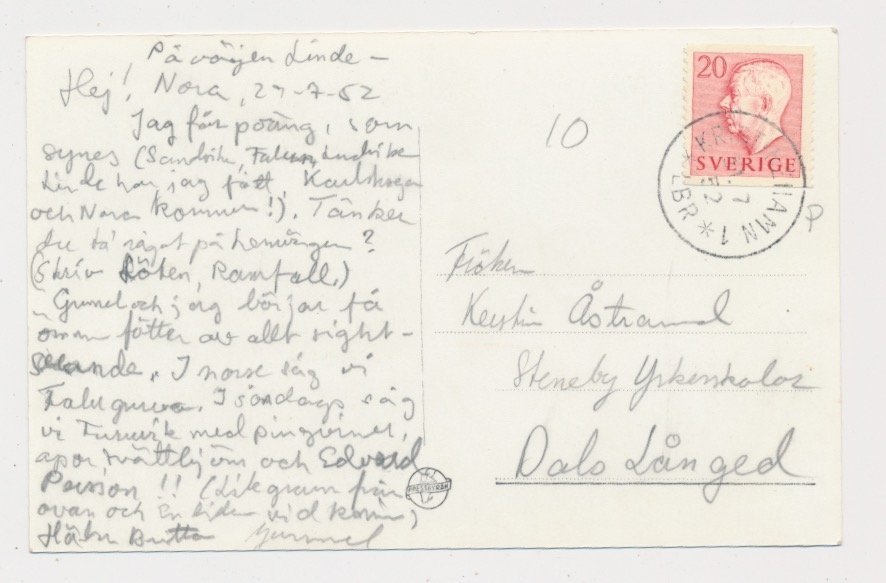 På vägen Linde –
Hej! Nora, 29-7-52
Jag får poäng, som
synes (Sandvik, Falun, Ludvika
Linde har jag fått, Karlskoga
och Nora kommer!). Tänker
du ta' något på hemvägen?
(Skriv Löten, Ramfall.)
Gunnel och jag börjar få
ömma fötter av allt sight-
seeande. I morse såg vi
Falu gruva. I söndags såg
vi Furuvik med pingviner,
apor, tvättbjörn och Edvard
Persson!! (Lite gram från
ovan och en bit vid)
Hälsn Britta Gunnel
PRESSBYRÅN
10
20
SVERIGE
HAMN 1
7
52
LBR
P
Fröken
Kerstin Åstrand
Steneby Yrkesskolor
Dals Långed